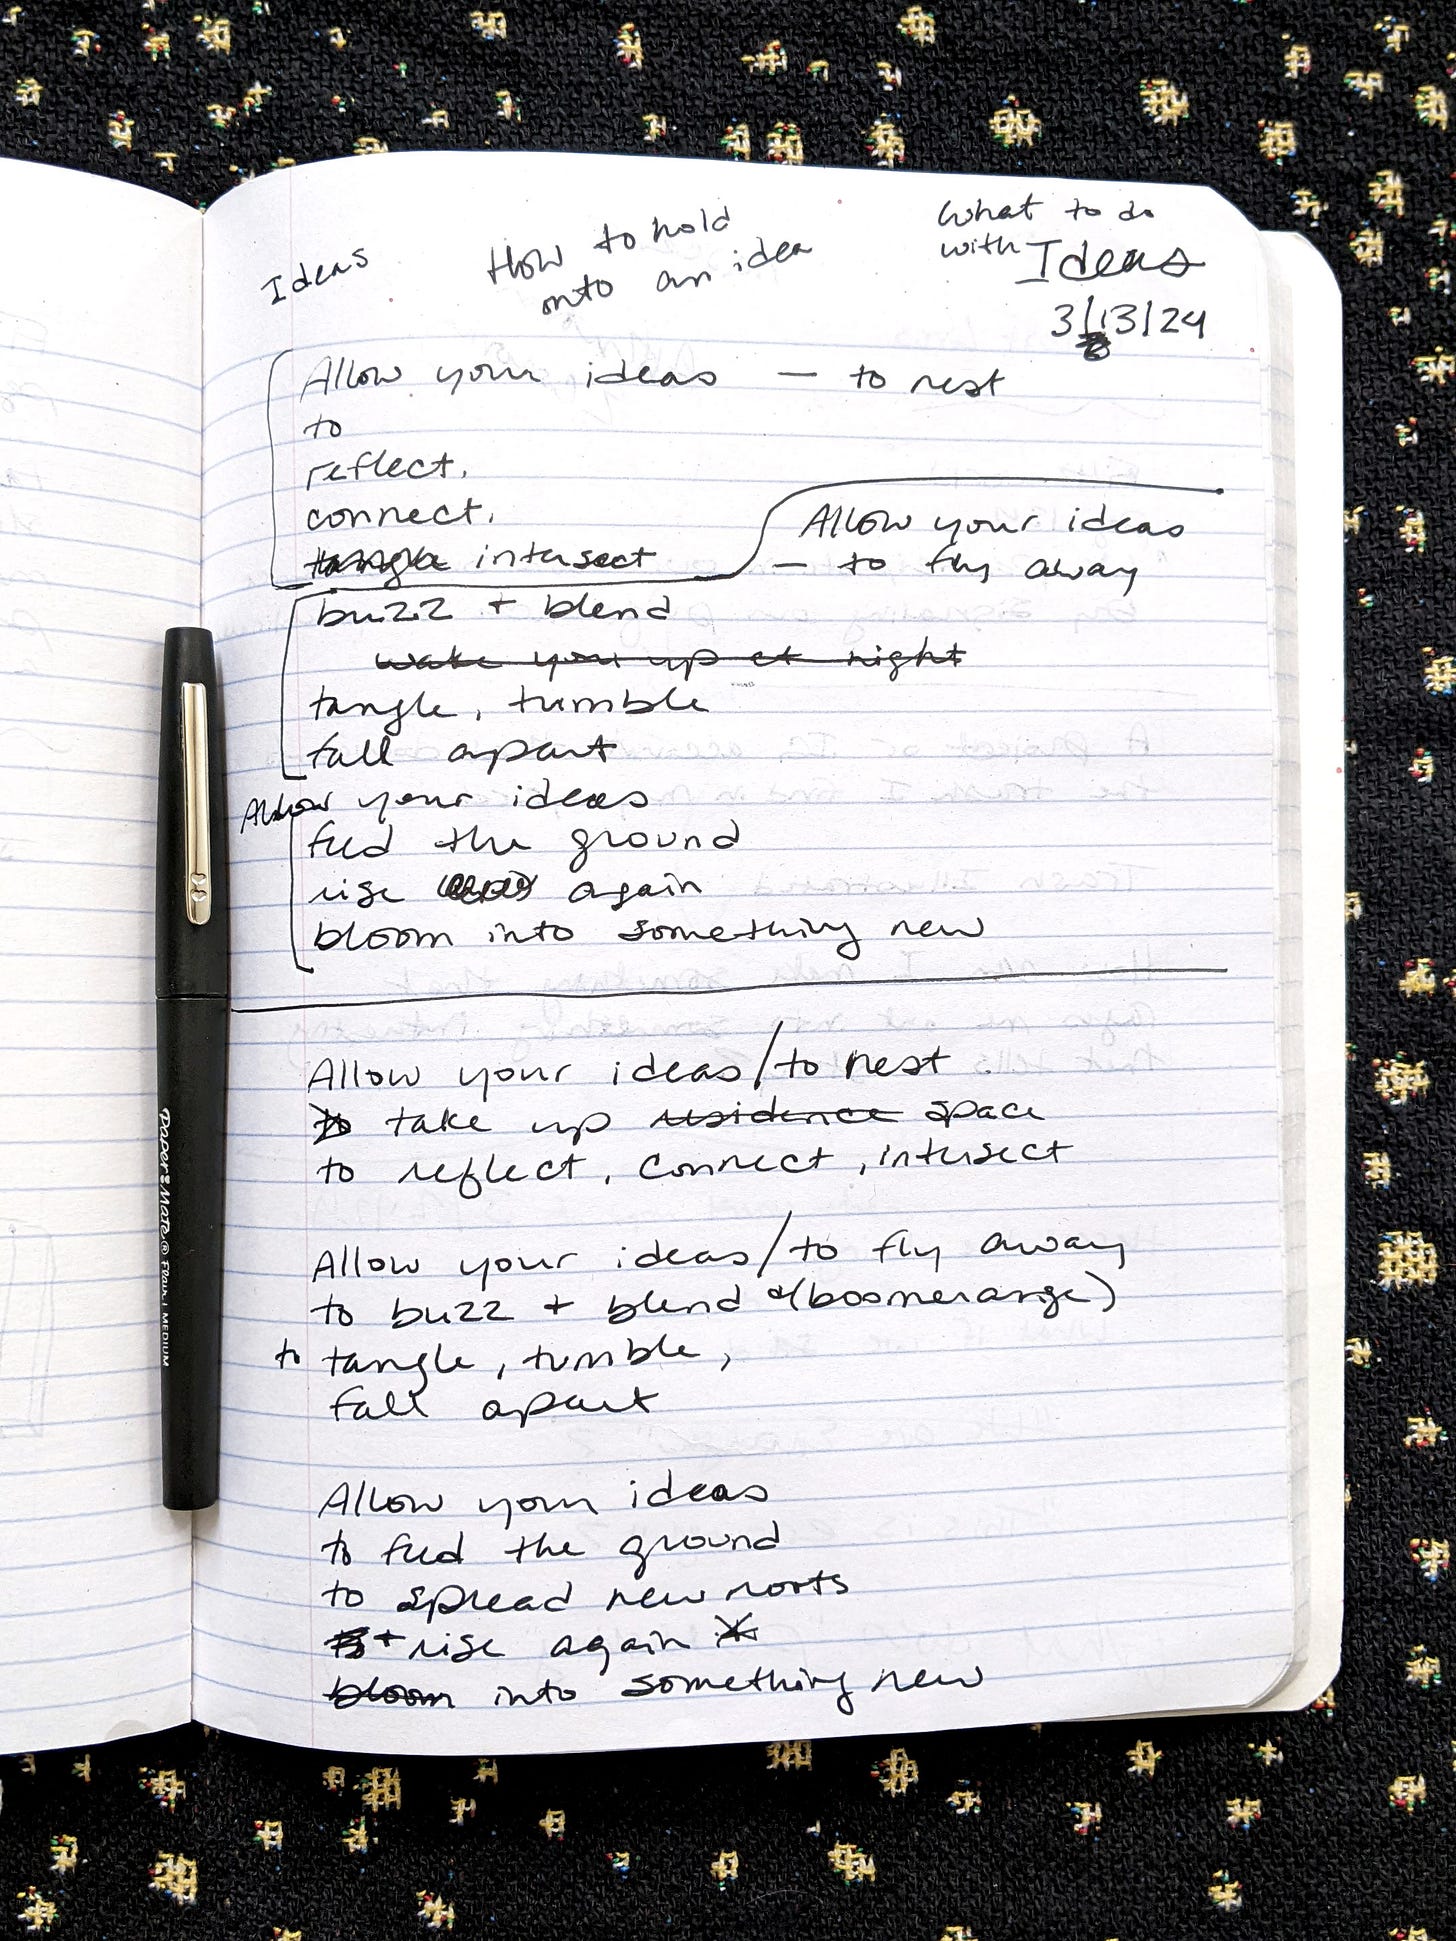 Ideas
How to hold
onto an idea
What to do
with Ideas
3/13/24
Allow your ideas — to rest
to
reflect,
connect,
tangle intersect
Allow your ideas
— to fly away
buzz + blend
wake you up at night
tangle, tumble
fall apart
Allow your ideas
feed the ground
rise again
bloom into something new
Allow your ideas/to nest
to take up residence space
to reflect, connect, intersect
Allow your ideas/to fly away
to buzz + blend (boomerange)
to tangle, tumble,
fall apart
Allow your ideas
to feed the ground
to spread new roots
+ rise again
bloom into something new
Paper:Mate® Flair M MEDIUM